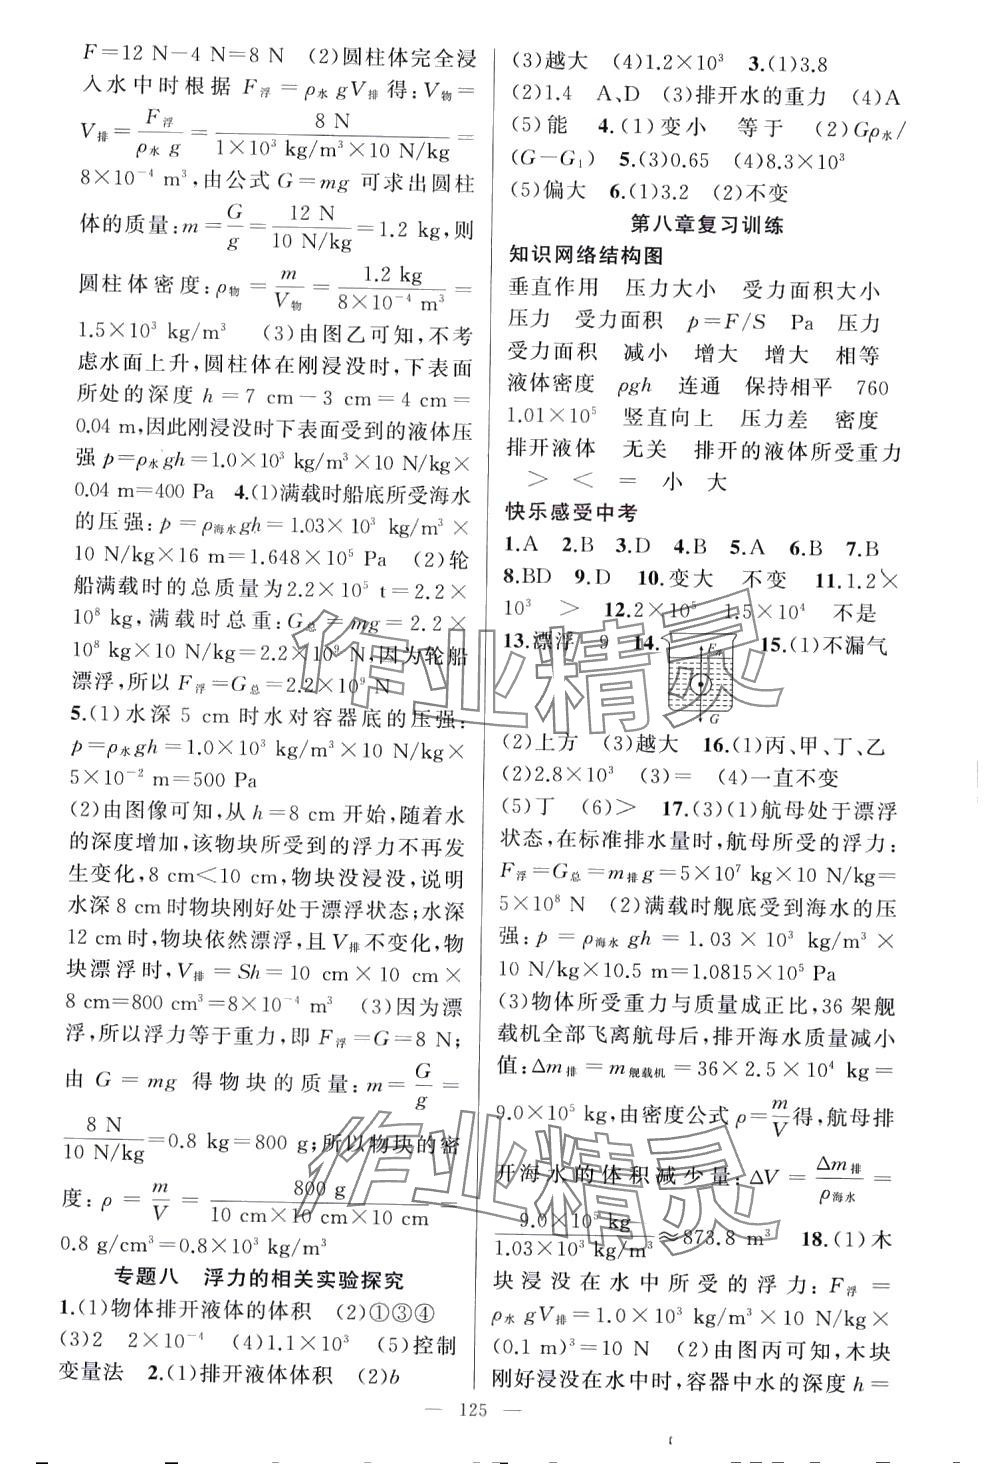 F=12 N-4 N=8 N (2)圆柱体完全浸
入水中时根据 F浮=ρ水gV排得:V物=
V排=F浮/ρ水g=8 N/(1×10³ kg/m³×10 N/kg)=
8×10⁻⁴ m³,由公式 G=mg 可求出圆柱
体的质量:m=G/g=12 N/(10 N/kg)=1.2 kg,则
圆柱体密度:ρ物=m/V物=1.2 kg/(8×10⁻⁴ m³)=
1.5×10³ kg/m³ (3)由图乙可知,不考
虑水面上升,圆柱体在刚浸没时,下表面
所处的深度 h=7 cm-3 cm=4 cm=
0.04 m,因此刚浸没时下表面受到的液体压
强 p=ρ水gh=1.0×10³ kg/m³×10 N/kg×
0.04 m=400 Pa 4.(1)满载时船底所受海水
的压强:p=ρ海水gh=1.03×10³ kg/m³×
10 N/kg×16 m=1.648×10⁵ Pa (2)轮
船满载时的总质量为2.2×10⁵ t=2.2×
10⁸ kg,满载时总重:G总=mg=2.2×
10⁸ kg×10 N/kg=2.2×10⁹ N,因为轮船
漂浮,所以 F浮=G总=2.2×10⁹ N
5.(1)水深 5 cm 时水对容器底的压强:
p=ρ水gh=1.0×10³ kg/m³×10 N/kg×
5×10⁻² m=500 Pa
(2)由图像可知,从 h=8 cm 开始,随着水
的深度增加,该物块所受到的浮力不再发
生变化,8 cm<10 cm,物块没浸没,说明
水深 8 cm 时物块刚好处于漂浮状态;水深
12 cm 时,物块依然漂浮,且 V排不变化,物
块漂浮时,V排=Sh=10 cm×10 cm×
8 cm=800 cm³=8×10⁻⁴ m³ (3)因为漂
浮,所以浮力等于重力,即 F浮=G=8 N;
由 G=mg 得物块的质量:m=G/g=
8 N/(10 N/kg)=0.8 kg=800 g;所以物块的密
度:ρ=m/V=800 g/(10 cm×10 cm×10 cm)=
0.8 g/cm³=0.8×10³ kg/m³
专题八 浮力的相关实验探究
1.(1)物体排开液体的体积 (2)①③④
(3)2 2×10⁻⁴ (4)1.1×10³ (5)控制
变量法 2.(1)排开液体体积 (2)b
(3)越大 (4)1.2×10³ 3.(1)3.8
(2)1.4 A、D (3)排开水的重力 (4)A
(5)能 4.(1)变小 等于 (2)Gρ水/
(G-G₁) 5.(3)0.65 (4)8.3×10³
(5)偏大 6.(1)3.2 (2)不变
第八章复习训练
知识网络结构图
垂直作用 压力大小 受力面积大小
压力 受力面积 p=F/S Pa 压力
受力面积 减小 增大 增大 相等
液体密度 ρgh 连通 保持相平 760
1.01×10⁵ 竖直向上 压力差 密度
排开液体 无关 排开的液体所受重力
> < = 小 大
快乐感受中考
1.A 2.B 3.D 4.B 5.A 6.B 7.B
8.BD 9.D 10.变大 不变 11.1.2×
10³ > 12.2×10⁵ 1.5×10⁴ 不是
13.漂浮 9 14. F浮 G 15.(1)不漏气
(2)上方 (3)越大 16.(1)丙、甲、丁、乙
(2)2.8×10³ (3)= (4)一直不变
(5)丁 (6)> 17.(3)(1)航母处于漂浮
状态,在标准排水量时,航母所受的浮力:
F浮=G总=m排g=5×10⁷ kg×10 N/kg=
5×10⁸ N (2)满载时舰底受到海水的压
强:p=ρ海水gh=1.03×10³ kg/m³×
10 N/kg×10.5 m=1.0815×10⁵ Pa
(3)物体所受重力与质量成正比,36 架舰
载机全部飞离航母后,排开海水质量减小
值:Δm排=m舰载机=36×2.5×10⁴ kg=
9.0×10⁵ kg,由密度公式 ρ=m/V得,航母排
开海水的体积减少量:ΔV=Δm排/ρ海水=
9.0×10⁵ kg/(1.03×10³ kg/m³)≈873.8 m³ 18.(1)木
块浸没在水中所受的浮力:F浮=
ρ水gV排=1.0×10³ kg/m³×10 N/kg×
(0.1 m)³=10 N (2)由图丙可知,木块
刚好浸没在水中时,容器中水的深度 h=
— 125 —
作业精灵
作业精灵